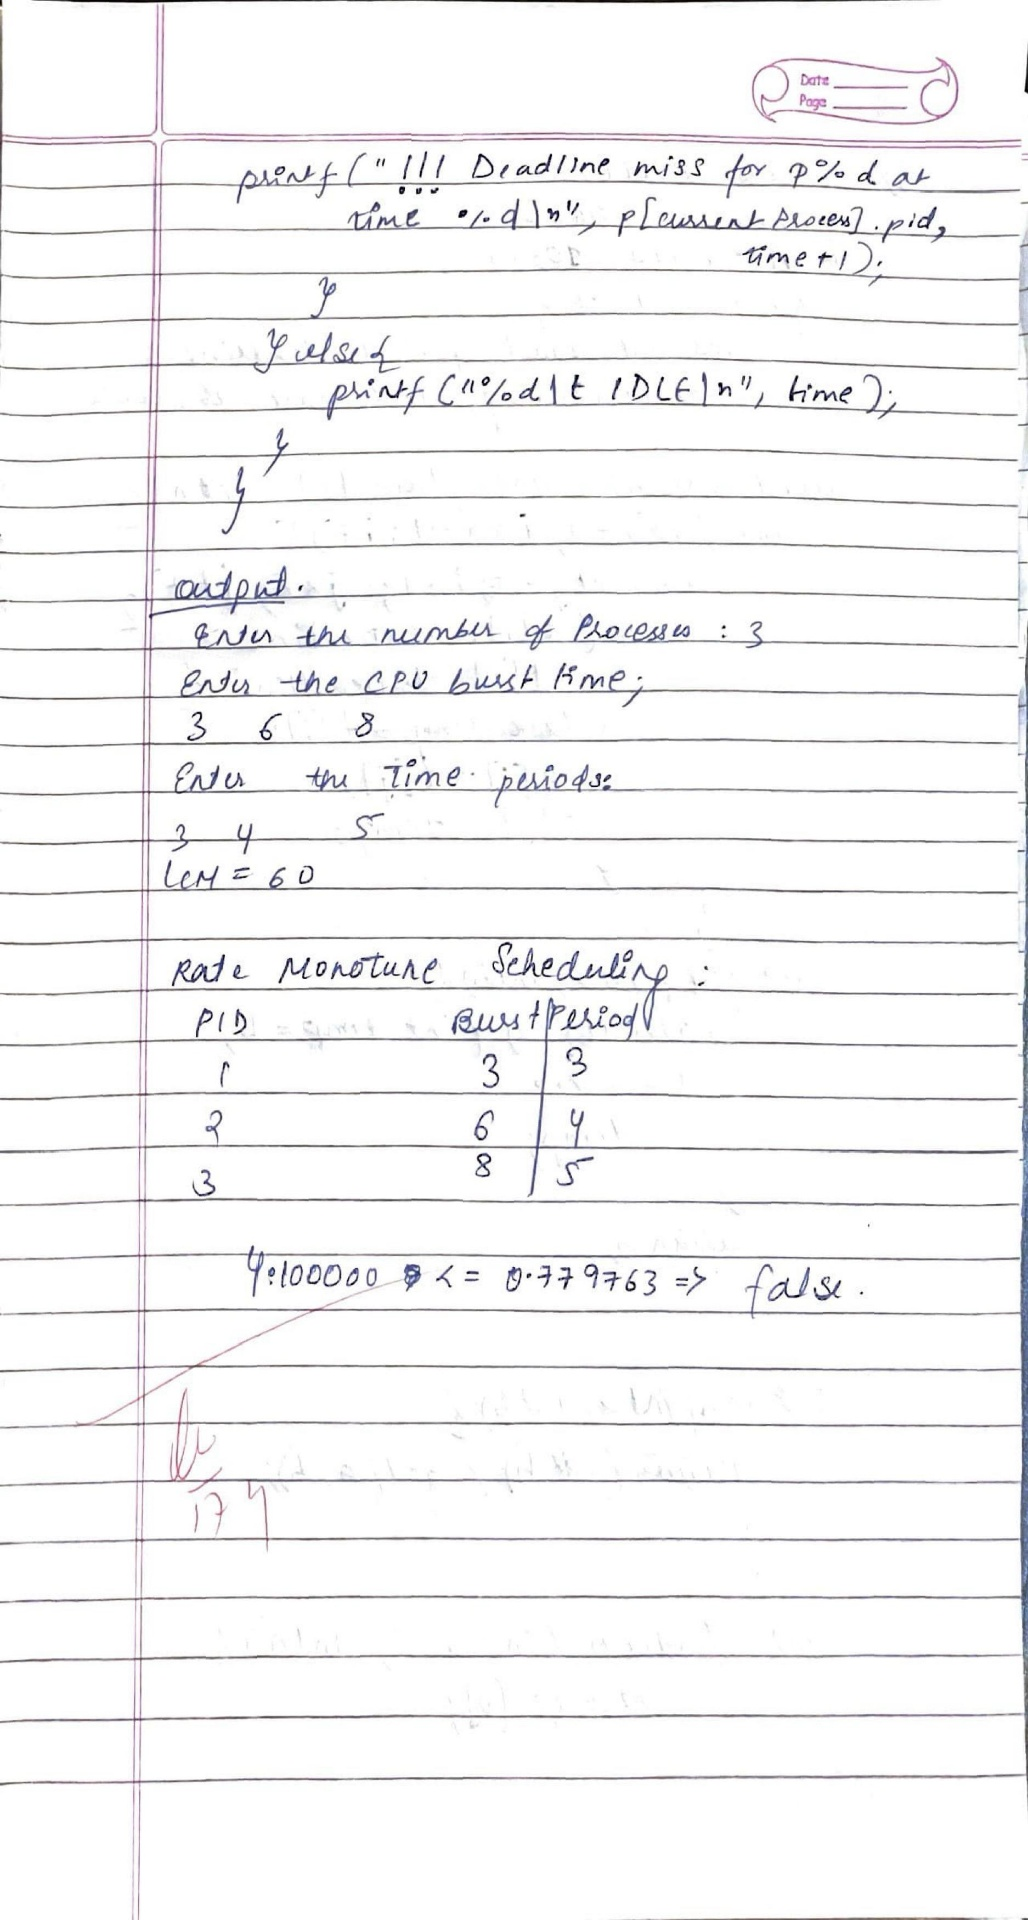 Date
Page
printf("!!! Deadline miss for P%d at
time %d\n", p[current Process].pid,
time+1);
}
} else {
printf("%d\t IDLE\n", time);
}
}
output.
Enter the number of Processes : 3
Enter the CPU burst time;
3 6 8
Enter the Time periods:
3 4 5
LCM = 60
Rate Monotune Scheduling :
PID Burst Period
1 3 3
2 6 4
3 8 5
4.100000 <= 0.779763 => false.
17 4